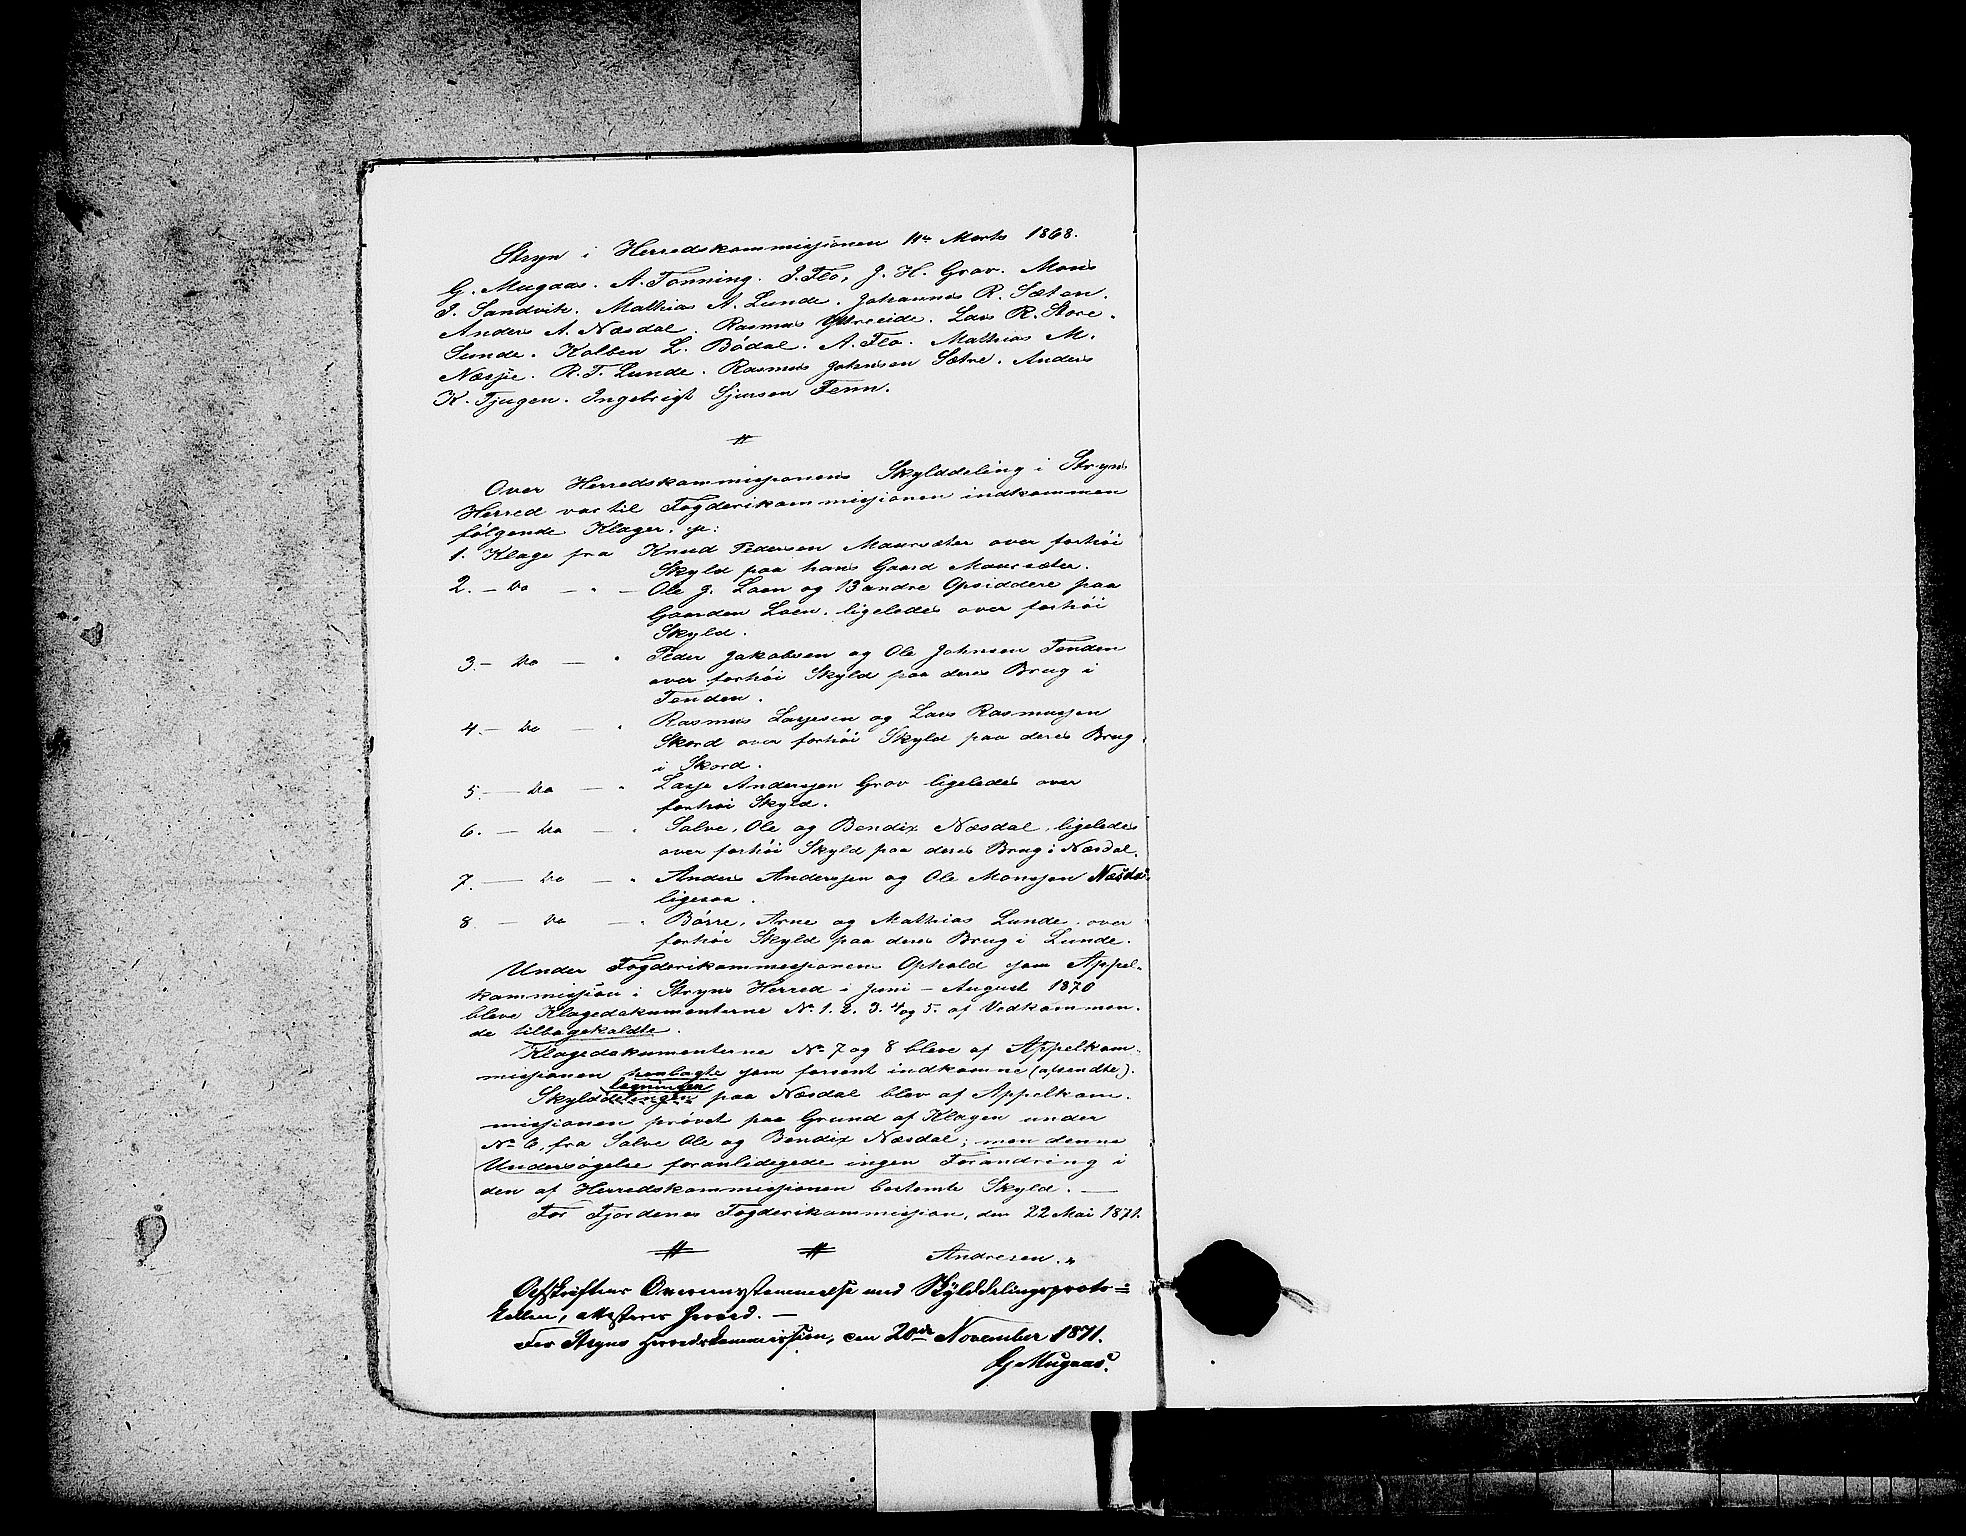 Stryn i Herredskommissionen 11te Marts 1868.
G. Mugaas. A. Tonning. I. Flo, J. H. Grov. Mons
I. Sandvik. Mathias A. Lunde. Johannes R. Sætren.
Anders A. Næsdal. Rasmus Ytreeide. Lars R. Store-
Sunde. Kolben L. Bødal. A. Flo. Mathias M.
Næsje. R. T. Lunde. Rasmus Johnsen Sætre. Anders
K. Tjugen. Ingebrigt Sjursen Tenn.
#
Over Herredskommissionens Skylddeling i Stryns
Herred var til Fogderikommissionen indkommen
følgende Klager:
1. Klage fra Knud Pedersen Maursæter over forhøi
Skyld paa hans Gaard Maursæter.
2. – Do — " — Ole J. Loen og 13 andre Opsiddere paa
Gaarden Loen, ligeledes over forhøi
Skyld.
3. – Do — " Peder Jakobsen og Ole Johnsen Tenden
over forhøi Skyld paa deres Brug i
Tenden.
4. – Do — " Rasmus Lassesen og Lars Rasmussen
Skord over forhøi Skyld paa deres Brug
i Skord.
5. — Do — " Lasse Anderssen Grov ligeledes over
forhøi Skyld.
6. — Do — " Salve, Ole og Bendix Næsdal, ligeledes
over forhøi Skyld paa deres Brug i Næsdal.
7. — Do — " Anders Anderssen og Ole Monssen Næsdal
ligesaa.
8 — Do — " Børre, Arne og Mathias Lunde, over
forhøi Skyld paa deres Brug i Lunde.
Under Fogderikommissionens Ophold som Appel-
kommission i Stryns Herred i Juni – August 1870
bleve Klagedokumenterne No 1. 2. 3. 4 og 5. af Vedkommen-
de tilbagekaldte.
Klagedokumenterne No 7 og 8 bleve af Appelkom-
missionen henlagte som forsent indkomne (afsendte).
lægningen
Skylddelingen paa Næsdal blev af Appelkom-
missionen prøvet paa Grund af Klagen under
No 6, fra Salve Ole og Bendix Næsdal; men denne
Undersøgelse foranledigede ingen Forandring i
den af Herredskommissionen bestemte Skyld. —
For Fjordenes Fogderikommission, den 22 Mai 1871.
# # Andresen. "
Afskriftens Overensstemmelse med Skylddelingsproto=
kollen, attesteres herved. —
For Stryns Herredskommission, den 20de November 1871.
G Mugaas.